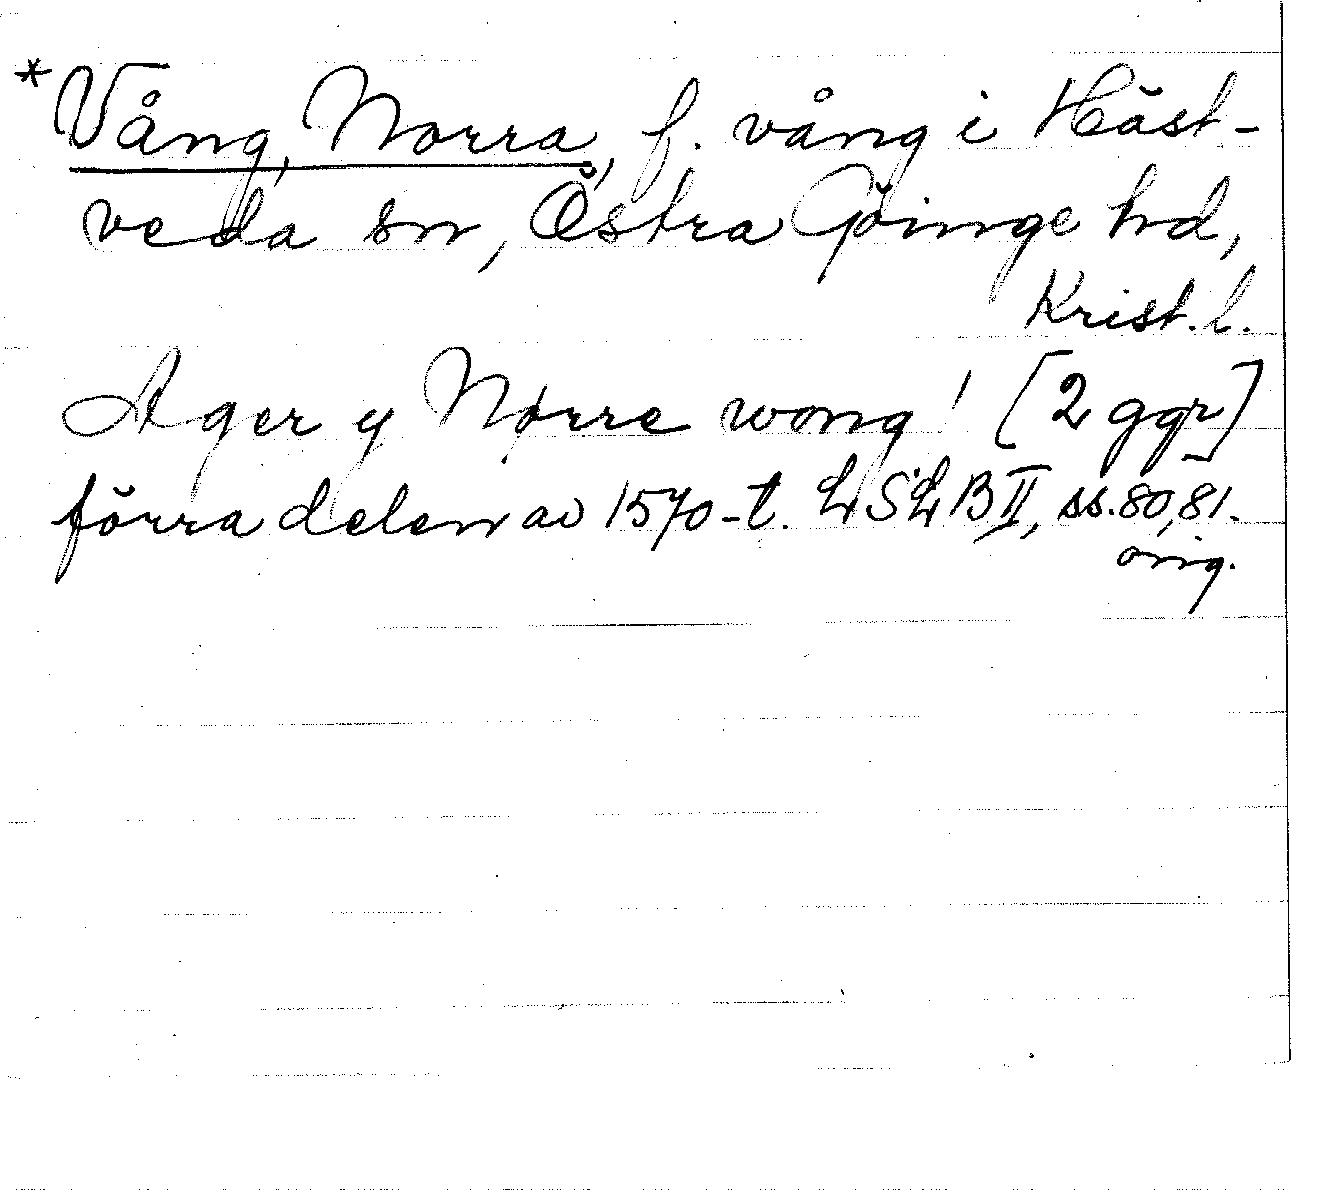 *Vång, Norra, f. vång i Häst-
veda sn, Östra Göinge hd,
Krist. l.
Ager y Nørre wong! [2 ggr]
förra delen av 1570-t. LSLB II, ss. 80, 81.
orig.